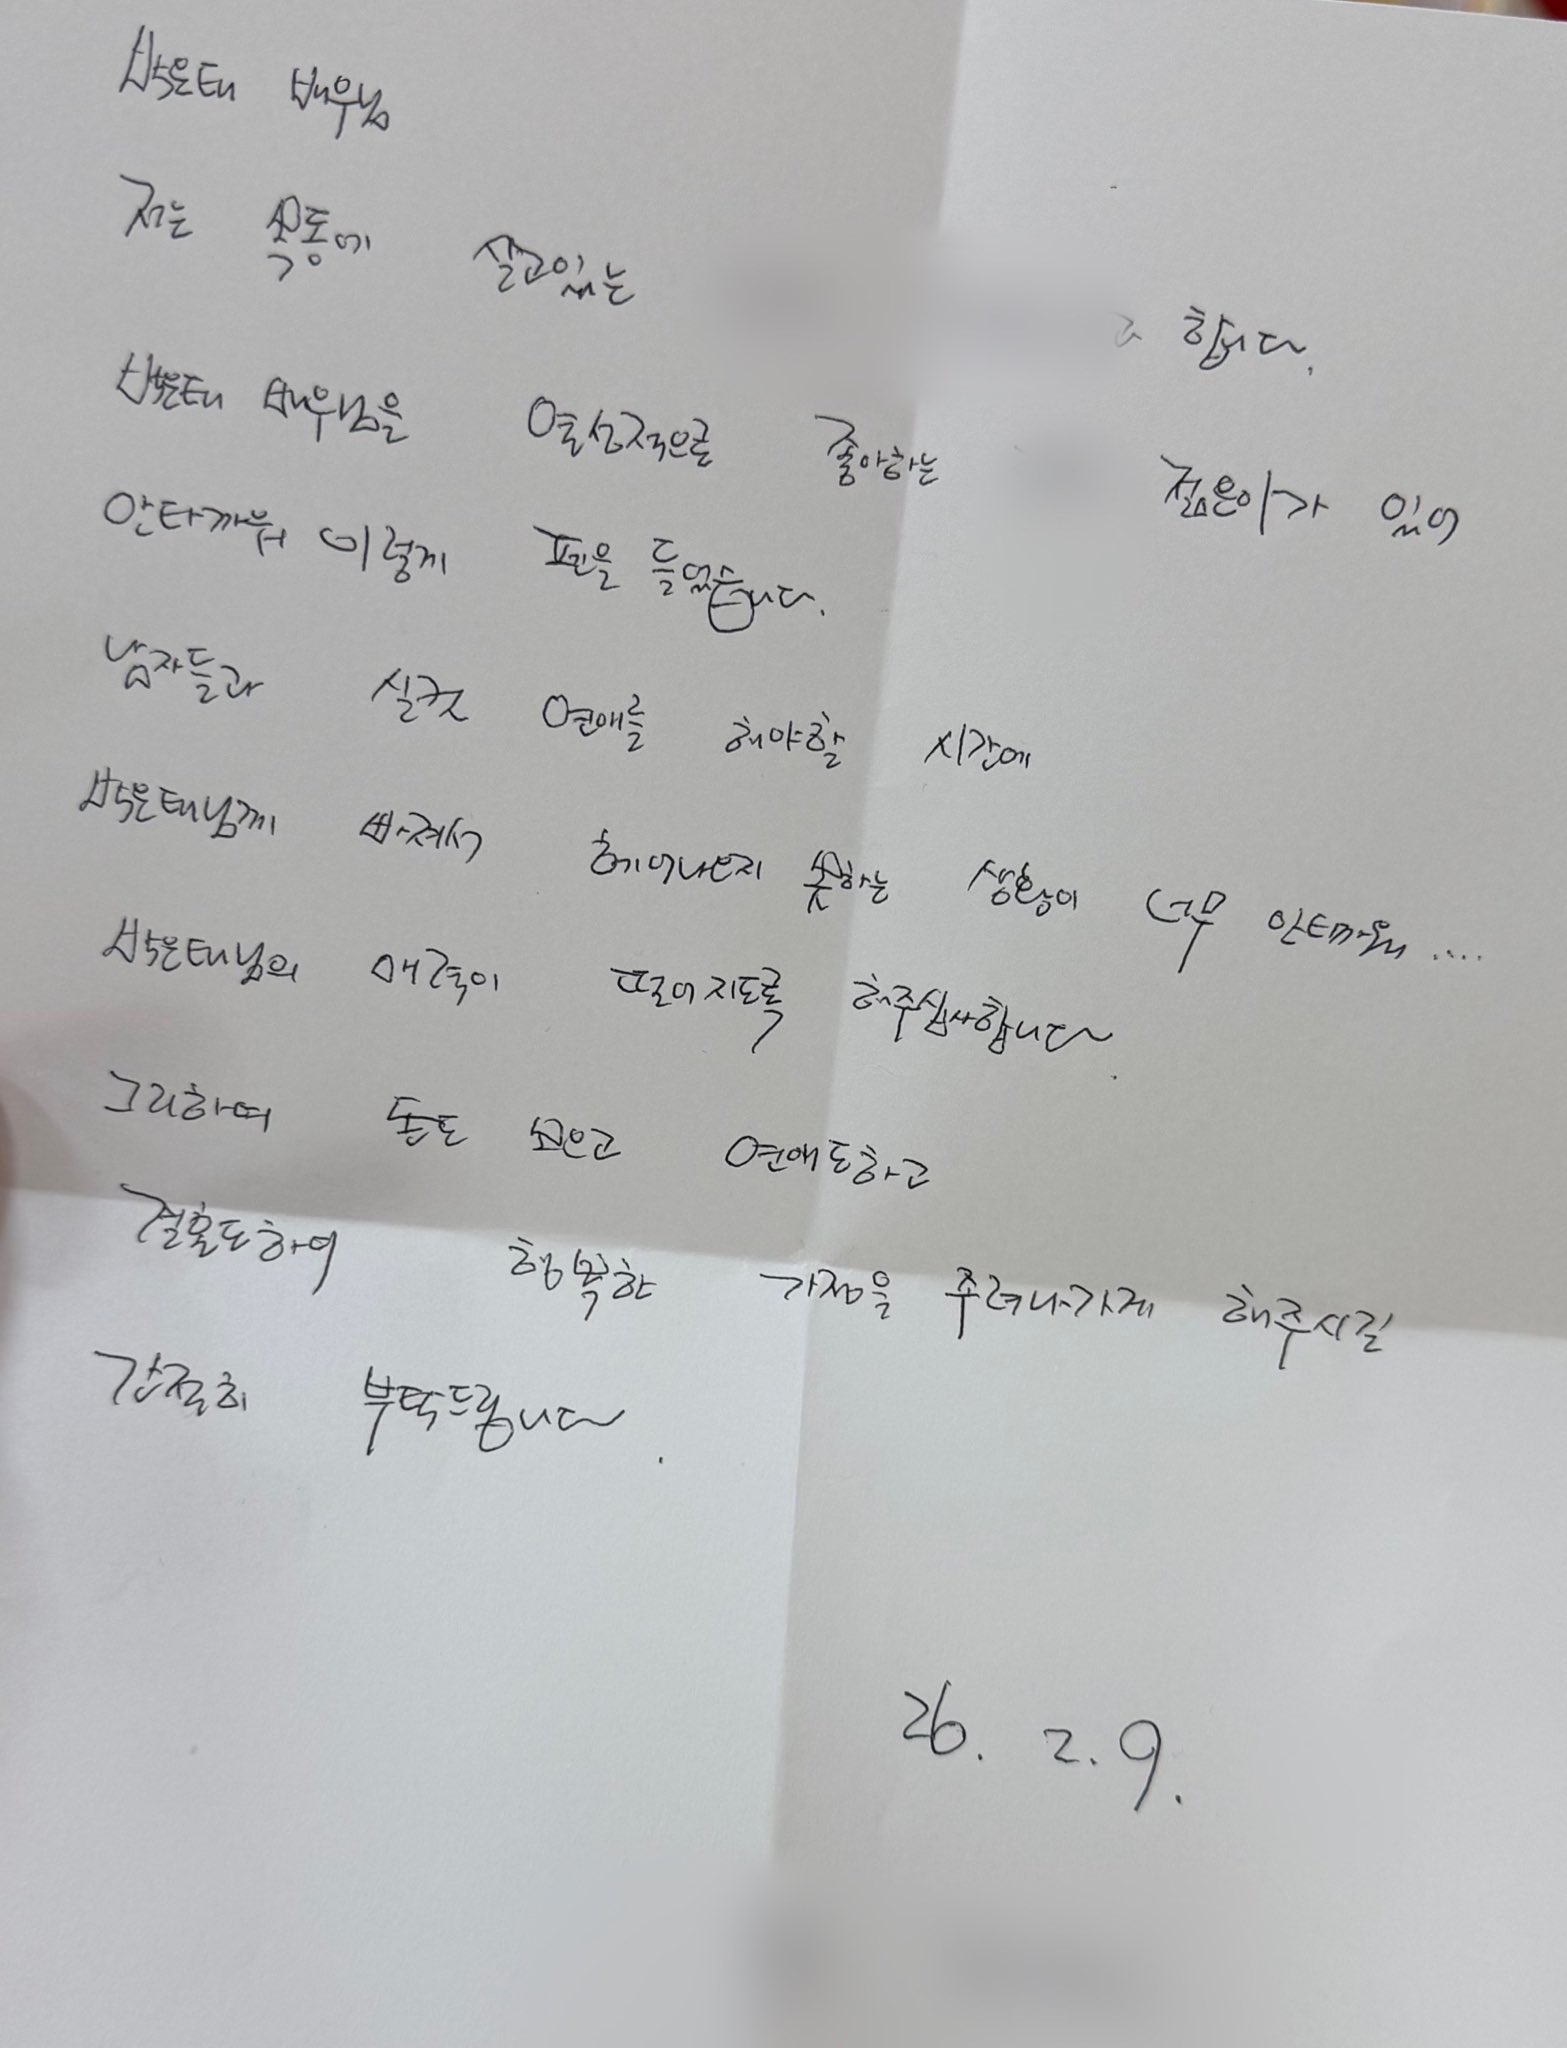 박은태 배우님
저는 목동에 살고있는 고 합니다.
박은태 배우님을 열성적으로 좋아하는 젊은아가 있어
안타까워 이렇게 펜을 들었습니다.
남자들과 실컷 연애를 해야할 시간에
박은태님께 빠져서 헤어나오지 못하는 생황이 너무 안타까워....
박은태님의 매력이 떨어지도록 해주십사합니다.
그리하여 돈도 모으고 연애도하고
결혼도하여 행복한 가정을 주려나가게 해주시길
간절히 부탁드립니다.
26. 2. 9.